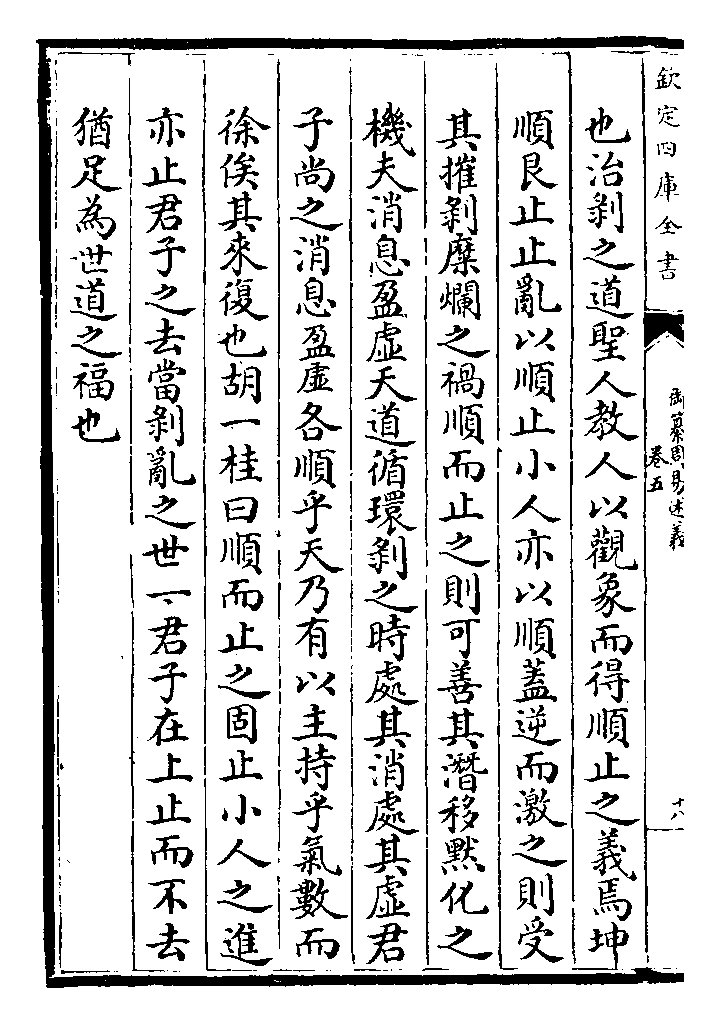 欽定四庫全書
御纂周易述義
卷五
十八
也治剝之道聖人教人以觀象而得順止之義焉坤
順艮止止亂以順止小人亦以順蓋逆而激之則受
其摧剝糜爛之禍順而止之則可善其潛移黙化之
機夫消息盈虛天道循環剝之時處其消處其虛君
子尚之消息盈虛各順乎天乃有以主持乎氣數而
徐俟其來復也胡一桂曰順而止之固止小人之進
亦止君子之去當剝亂之世一君子在上止而不去
猶足為世道之福也